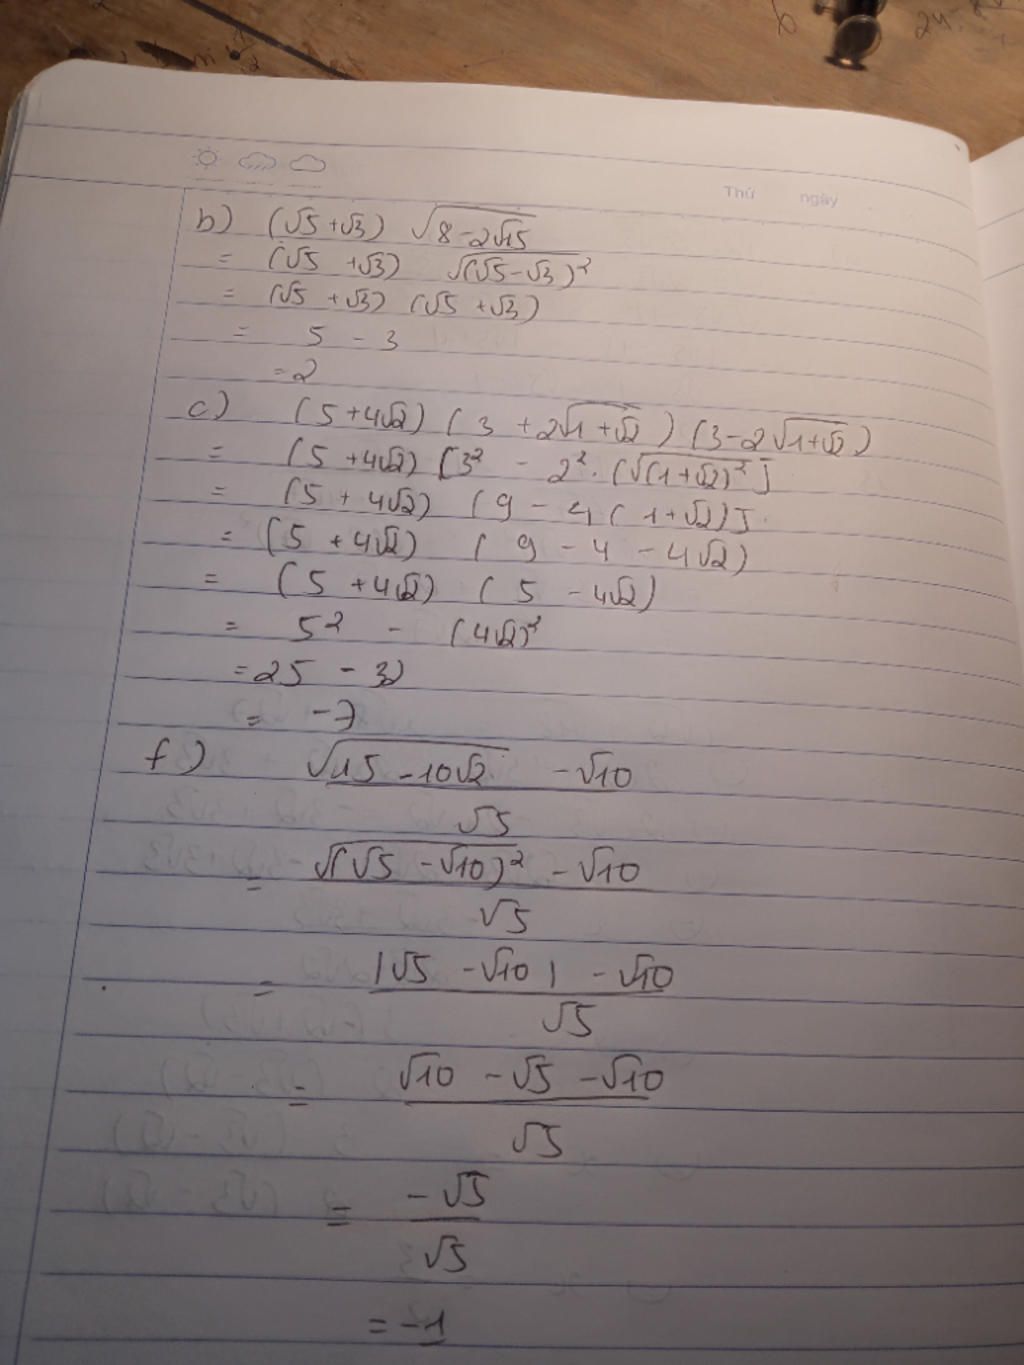 Thứ ngày
b) (√5 + √3) √(8 - 2√15)
= (√5 + √3) √(√5 - √3)²
= (√5 + √3) (√5 + √3)
= 5 - 3
= 2
c) (5 + 4√2) (3 + 2√(1 + √2)) (3 - 2√(1 + √2))
= (5 + 4√2) [3² - 2² . (√(1 + √2)²]
= (5 + 4√2) (9 - 4(1 + √2)]
= (5 + 4√2) (9 - 4 - 4√2)
= (5 + 4√2) (5 - 4√2)
= 5² - (4√2)²
= 25 - 32
= -7
f) √(15 - 10√2) - √10
√5
= √(√5 - √10)² - √10
√5
= |√5 - √10| - √10
√5
= √10 - √5 - √10
√5
= -√5
√5
= -1